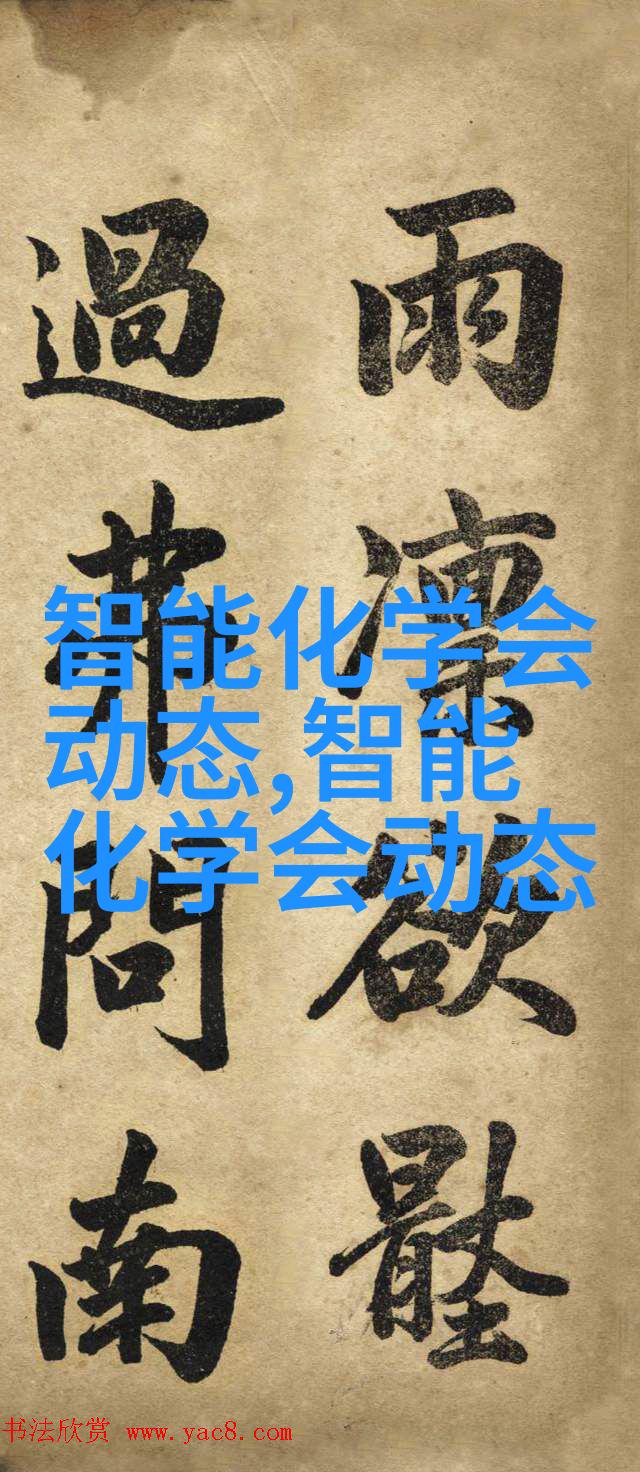 雨凛欲
過弗問南
智能化学会
动态,智能
化学会动态
书法欣赏 www.yac8.com